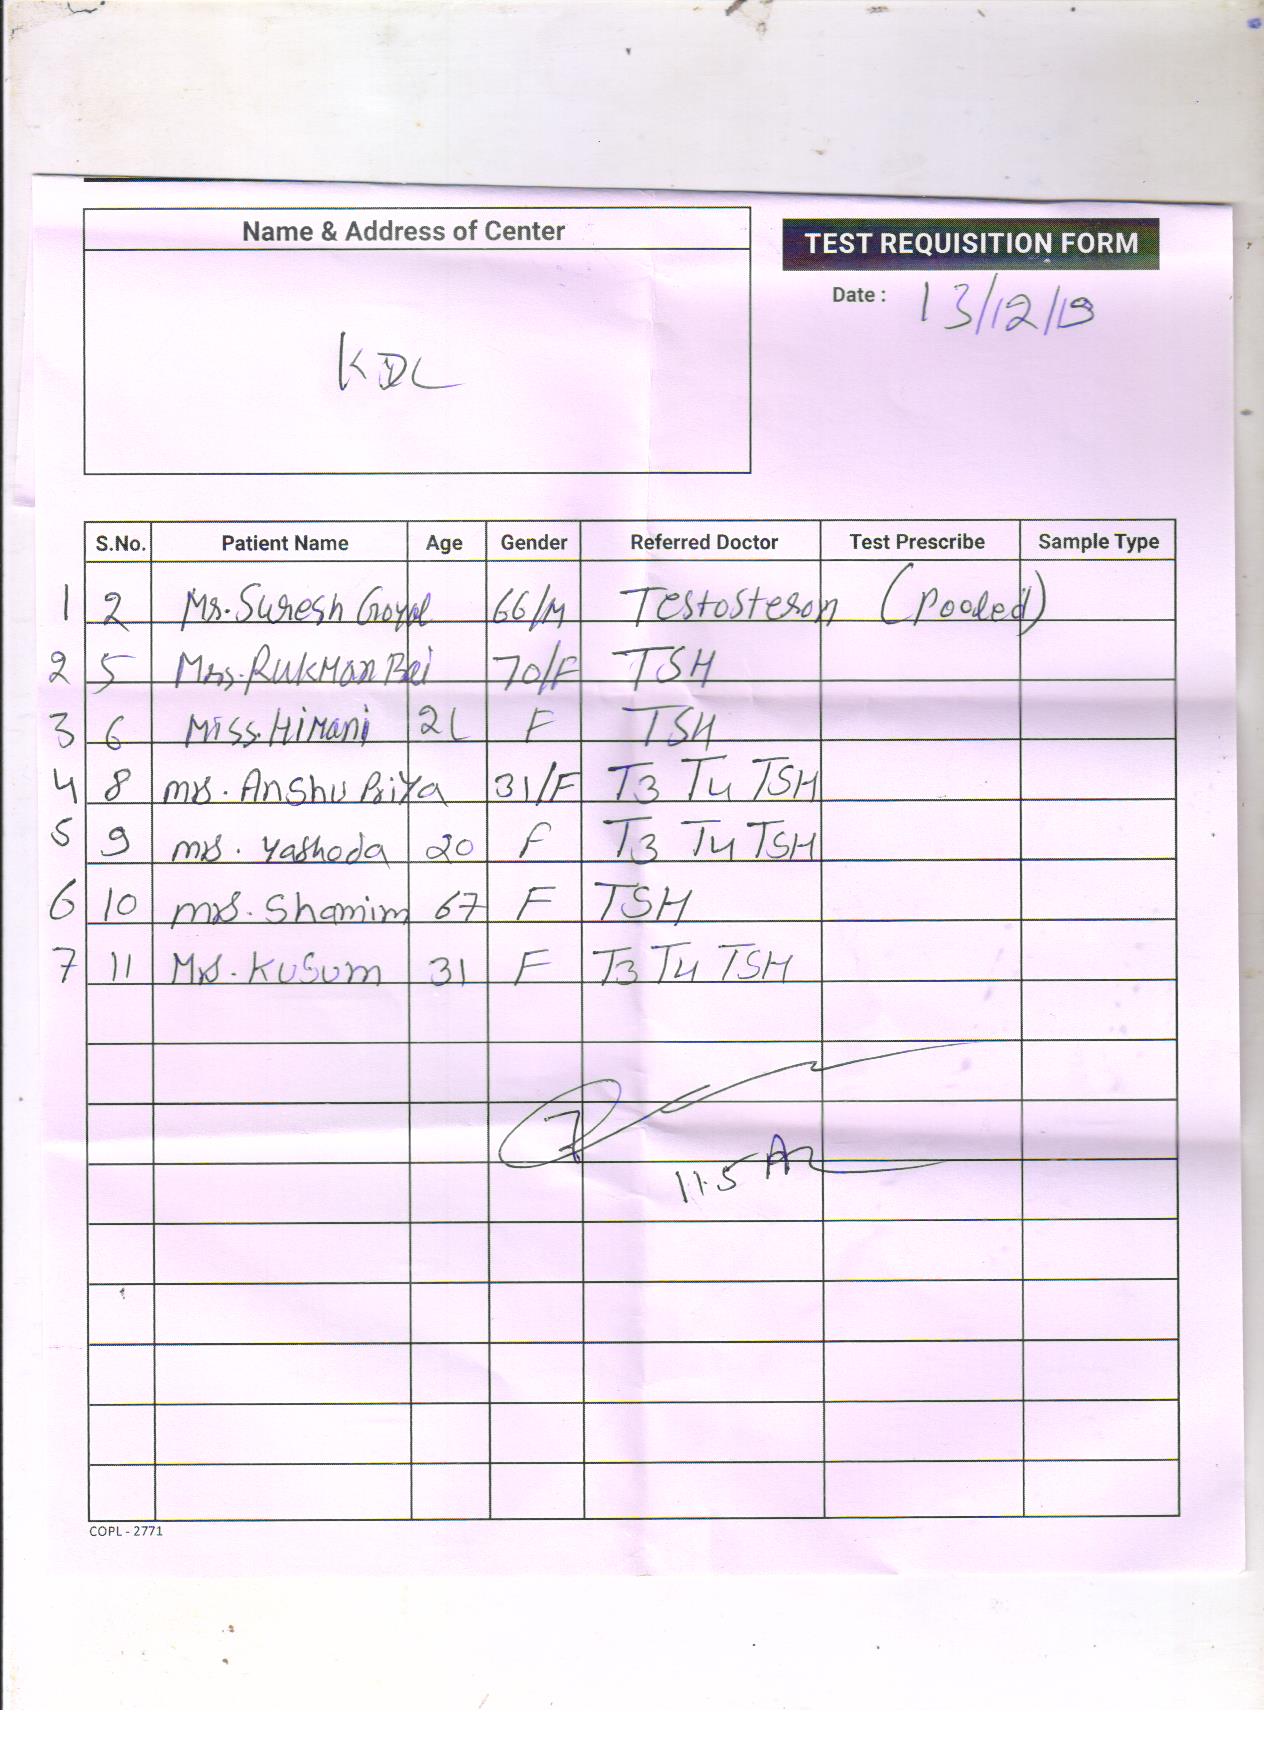 Name & Address of Center
TEST REQUISITION FORM
Date : 13/12/19
KDL
S.No. Patient Name Age Gender Referred Doctor Test Prescribe Sample Type
1 2 Mr. Suresh Goyal 66/M Testosteron (Pooled)
2 5 Mrs. Rukman Bai 70/F TSH
3 6 Miss. Himani 21 F TSH
4 8 mrs. Anshu Priya 31/F T3 T4 TSH
5 9 mrs. Yashoda 20 F T3 T4 TSH
6 10 mrs. Shamim 67 F TSH
7 11 Mrs. Kusum 31 F T3 T4 TSH
7
11.5
COPL - 2771